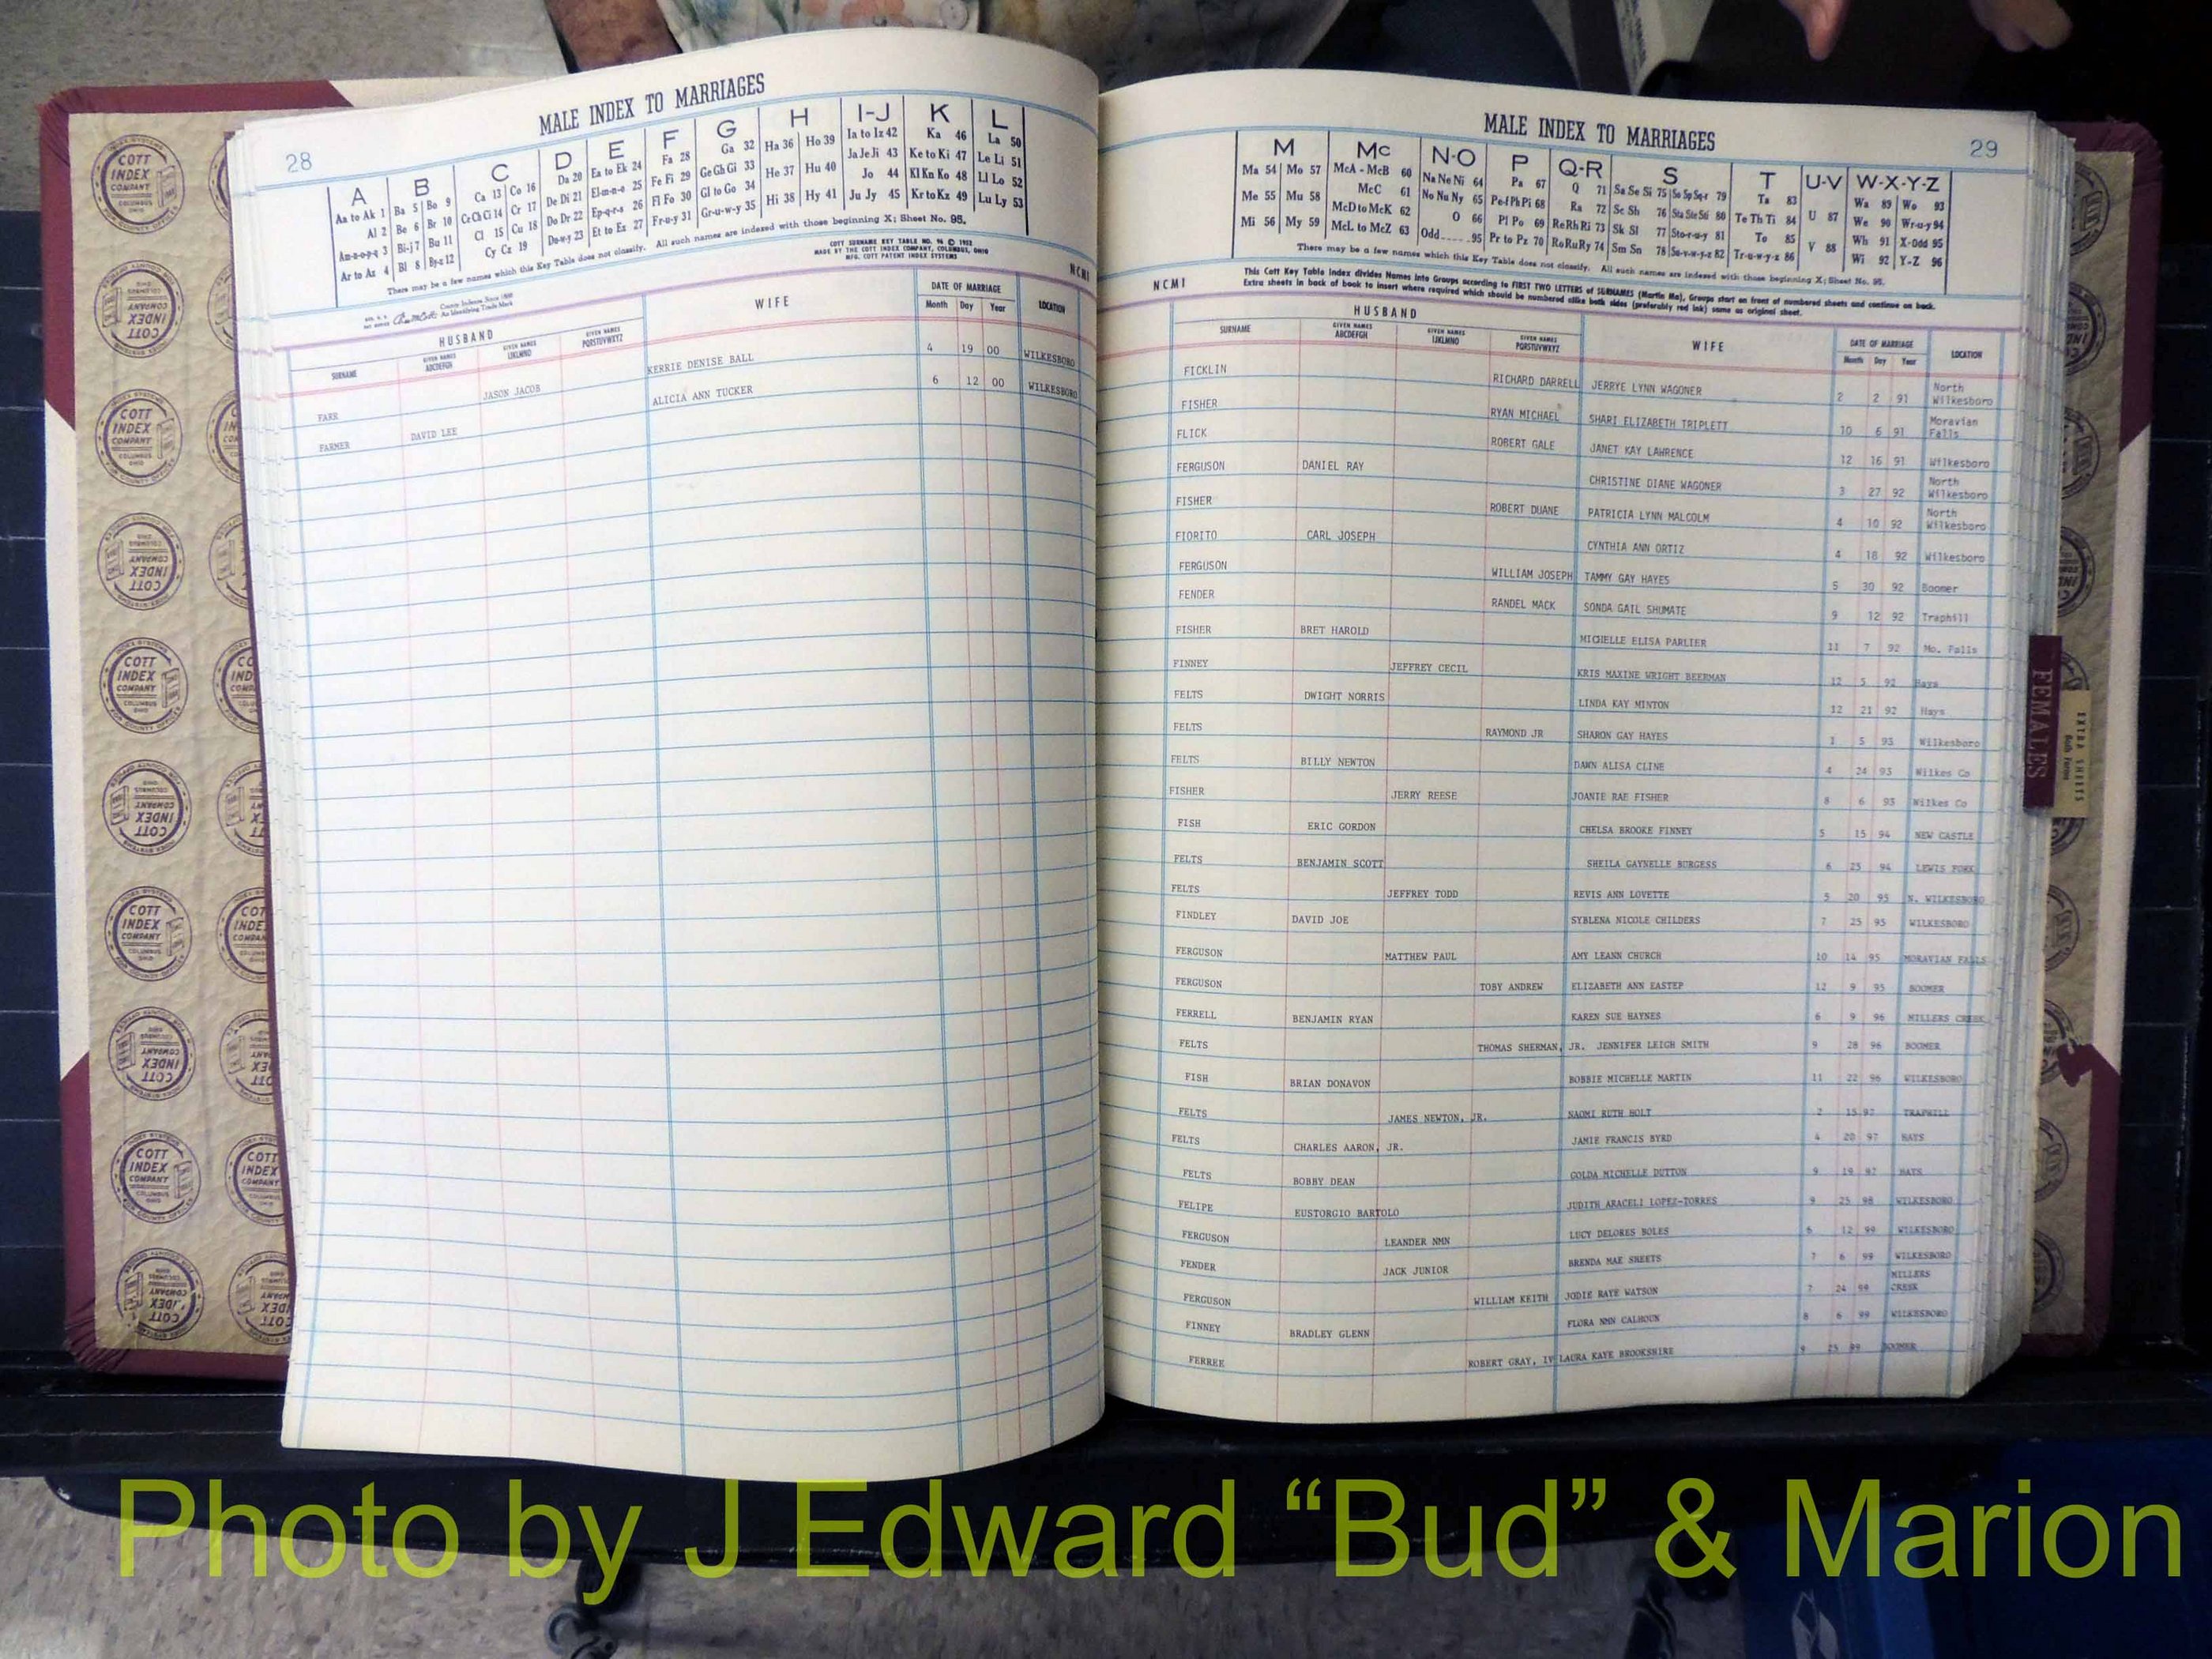 28
MALE INDEX TO MARRIAGES
A B C D E F G H I-J K L
Aa to Ak 1 Ba 5 Bo 9 Ca 13 Co 16 Da 20 Ea to Ek 24 Fa 28 Ga 32 Ha 36 Ho 39 Ia to Iz 42 Ka 46 La 50
Al 2 Be 6 Br 10 Ce Ch Ci 14 Cr 17 De Di 21 El-m-n-o 25 Fe Fi 29 Ge Gh Gi 33 He 37 Hu 40 Ja Je Ji 43 Ke to Ki 47 Le Li 51
Am-n-o-p-q 3 Bi-j 7 Bu 11 Cl 15 Cu 18 Do Dr 22 Ep-q-r-s 26 Fl Fo 30 Gl to Go 34 Hi 38 Hy 41 Jo 44 Kl Kn Ko 48 Ll Lo 52
Ar to Az 4 Bl 8 By-z 12 Cy Cz 19 Du-w-y 23 Et to Ez 27 Fr-u-y 31 Gr-u-w-y 35 Ju Jy 45 Kr to Kz 49 Lu Ly 53
There may be a few names which this Key Table does not classify. All such names are indexed with those beginning X; Sheet No. 95.
COTT SURNAME KEY TABLE NO. 96 © 1952
MADE BY THE COTT INDEX COMPANY, COLUMBUS, OHIO
MFG. COTT PATENT INDEX SYSTEMS
County Indexes Since 1888
An Identifying Trade Mark
NCMI
HUSBAND WIFE DATE OF MARRIAGE LOCATION
SURNAME GIVEN NAMES ABCDEFGH GIVEN NAMES IJKLMNO GIVEN NAMES PQRSTUVWXYZ Month Day Year
FARR JASON JACOB KERRIE DENISE BALL 4 19 00 WILKESBORO
FARMER DAVID LEE ALICIA ANN TUCKER 6 12 00 WILKESBORO
MALE INDEX TO MARRIAGES
29
M Mc N-O P Q-R S T U-V W-X-Y-Z
Ma 54 Mo 57 McA - McB 60 Na Ne Ni 64 Pa 67 Q 71 Sa Se Si 75 So Sp Sq-r 79 Ta 83 Wa 89 Wo 93
Me 55 Mu 58 McC 61 No Nu Ny 65 Pe-f Ph Pi 68 Ra 72 Sc Sh 76 Sta Ste Sti 80 Te Th Ti 84 U 87 We 90 Wr-u-y 94
Mi 56 My 59 McD to McK 62 O 66 Pl Po 69 Re Rh Ri 73 Sk Sl 77 Sto-r-u-y 81 To 85 V 88 Wh 91 X-Odd 95
McL to McZ 63 Odd 95 Pr to Pz 70 Ro Ru Ry 74 Sm Sn 78 Su-v-w-y-z 82 Tr-u-w-y-z 86 Wi 92 Y-Z 96
There may be a few names which this Key Table does not classify. All such names are indexed with those beginning X; Sheet No. 95.
This Cott Key Table Index divides Names into Groups according to FIRST TWO LETTERS of SURNAMES (Martin Ma), Groups start on front of numbered sheets and continue on back.
Extra sheets in back of book to insert where required which should be numbered alike both sides (preferably red ink) same as original sheet.
NCMI
HUSBAND WIFE DATE OF MARRIAGE LOCATION
SURNAME GIVEN NAMES ABCDEFGH GIVEN NAMES IJKLMNO GIVEN NAMES PQRSTUVWXYZ Month Day Year
FICKLIN RICHARD DARRELL JERRYE LYNN WAGONER 2 2 91 North Wilkesboro
FISHER RYAN MICHAEL SHARI ELIZABETH TRIPLETT 10 6 91 Moravian Falls
FLICK ROBERT GALE JANET KAY LAWRENCE 12 16 91 Wilkesboro
FERGUSON DANIEL RAY CHRISTINE DIANE WAGONER 3 27 92 North Wilkesboro
FISHER ROBERT DUANE PATRICIA LYNN MALCOLM 4 10 92 North Wilkesboro
FIORITO CARL JOSEPH CYNTHIA ANN ORTIZ 4 18 92 Wilkesboro
FERGUSON WILLIAM JOSEPH TAMMY GAY HAYES 5 30 92 Boomer
FENDER RANDEL MACK SONDA GAIL SHUMATE 9 12 92 Traphill
FISHER BRET HAROLD MICHELLE ELISA PARLIER 11 7 92 Mo. Falls
FINNEY JEFFREY CECIL KRIS MAXINE WRIGHT BEERMAN 12 5 92 Hays
FELTS DWIGHT NORRIS LINDA KAY MINTON 12 21 92 Hays
FELTS RAYMOND JR SHARON GAY HAYES 1 5 93 Wilkesboro
FELTS BILLY NEWTON DAWN ALISA CLINE 4 24 93 Wilkes Co
FISHER JERRY REESE JOANIE RAE FISHER 8 6 93 Wilkes Co
FISH ERIC GORDON CHELSA BROOKE FINNEY 5 15 94 NEW CASTLE
FELTS BENJAMIN SCOTT SHEILA GAYNELLE BURGESS 6 25 94 LEWIS FORK
FELTS JEFFREY TODD REVIS ANN LOVETTE 5 20 95 N. WILKESBORO
FINDLEY DAVID JOE SYBLENA NICOLE CHILDERS 7 25 95 WILKESBORO
FERGUSON MATTHEW PAUL AMY LEANN CHURCH 10 14 95 MORAVIAN FALLS
FERGUSON TOBY ANDREW ELIZABETH ANN EASTEP 12 9 95 BOOMER
FERRELL BENJAMIN RYAN KAREN SUE HAYNES 6 9 96 MILLERS CREEK
FELTS THOMAS SHERMAN, JR. JENNIFER LEIGH SMITH 9 28 96 BOOMER
FISH BRIAN DONAVON BOBBIE MICHELLE MARTIN 11 22 96 WILKESBORO
FELTS JAMES NEWTON, JR. NAOMI RUTH HOLT 2 15 97 TRAPHILL
FELTS CHARLES AARON, JR. JAMIE FRANCIS BYRD 4 20 97 HAYS
FELTS BOBBY DEAN GOLDA MICHELLE DUTTON 9 19 97 HAYS
FELIPE EUSTORGIO BARTOLO JUDITH ARACELI LOPEZ-TORRES 9 25 98 WILKESBORO
FERGUSON LEANDER NMN LUCY DELORES BOLES 6 12 99 WILKESBORO
FENDER JACK JUNIOR BRENDA MAE SHEETS 7 6 99 WILKESBORO
FERGUSON WILLIAM KEITH JODIE RAYE WATSON 7 24 99 MILLERS CREEK
FINNEY BRADLEY GLENN FLORA NMN CALHOUN 8 6 99 WILKESBORO
FERREE ROBERT GRAY, IV LAURA KAYE BROOKSHIRE 9 25 99 BOOMER
FEMALES
EXTRA SHEETS
COTT INDEX COMPANY
COLUMBUS OHIO
Photo by J Edward “Bud” & Marion